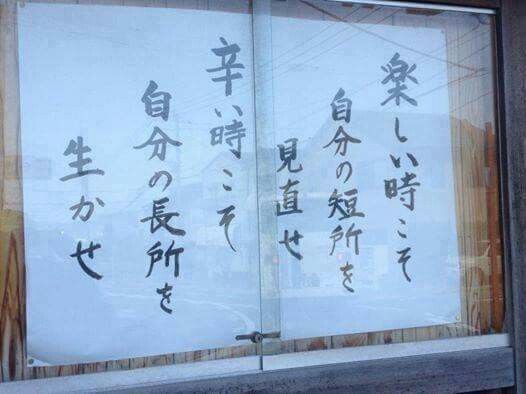 楽しい時こそ
自分の短所を
見直せ
辛い時こそ
自分の長所を
生かせ